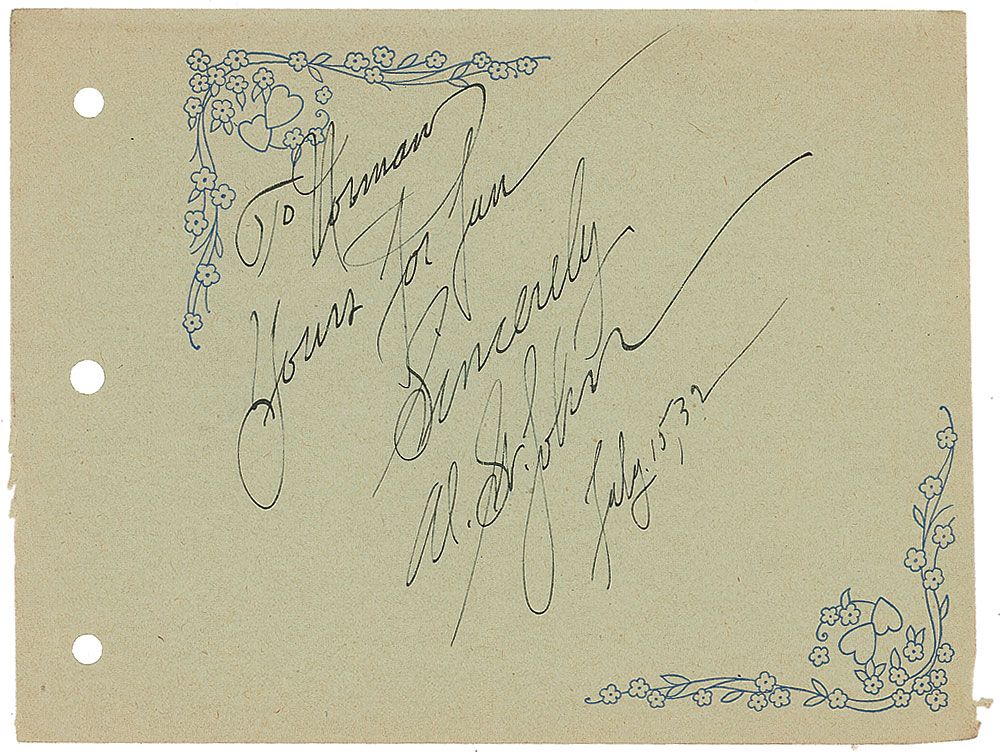 To Norman
Yours for fun
Sincerely
Al. St. John
July. 15, 32